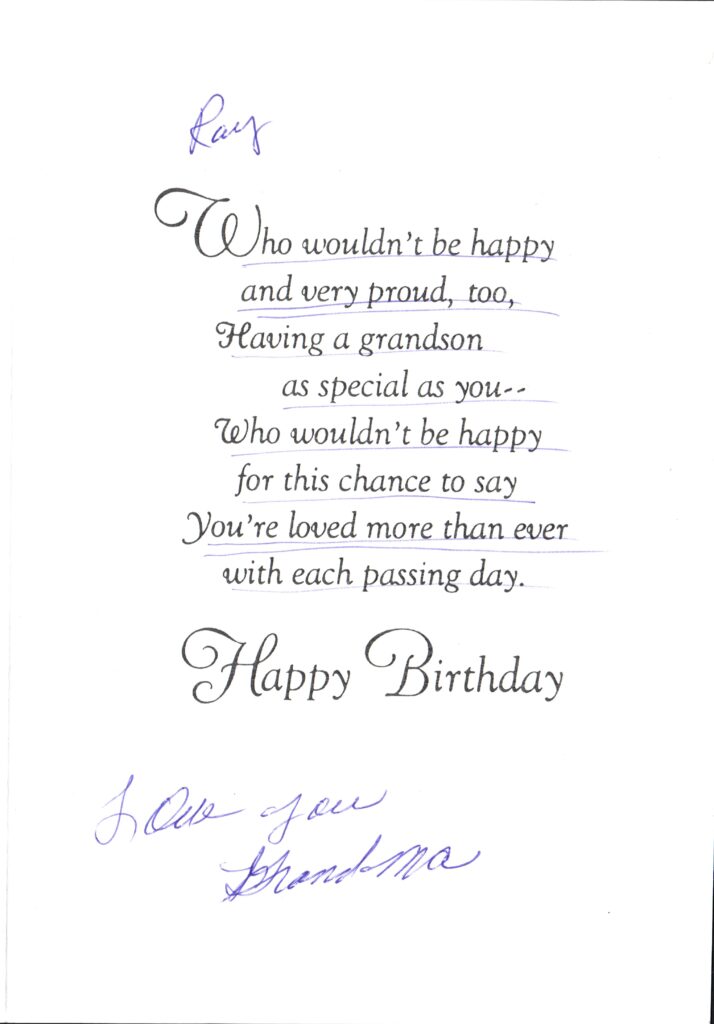 Ray
Who wouldn't be happy
and very proud, too,
Having a grandson
as special as you--
Who wouldn't be happy
for this chance to say
You're loved more than ever
with each passing day.
Happy Birthday
Love you
Grand-Ma